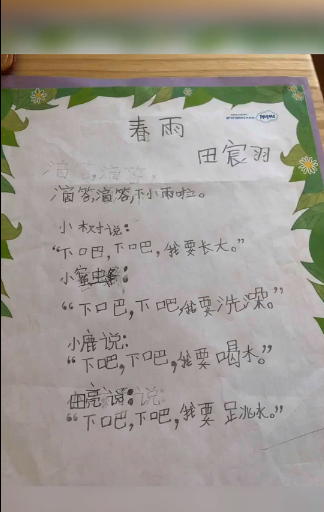 春雨
田宸羽
滴答,滴答,
滴答,滴答,下小雨啦。
小树说:
“下吧,下吧,我要长大。”
小蜜虫
“下吧,下吧,我要洗澡。”
小鹿说:
“下吧,下吧,我要喝水。”
田亮说:说
“下吧,下吧,我要跳水。”